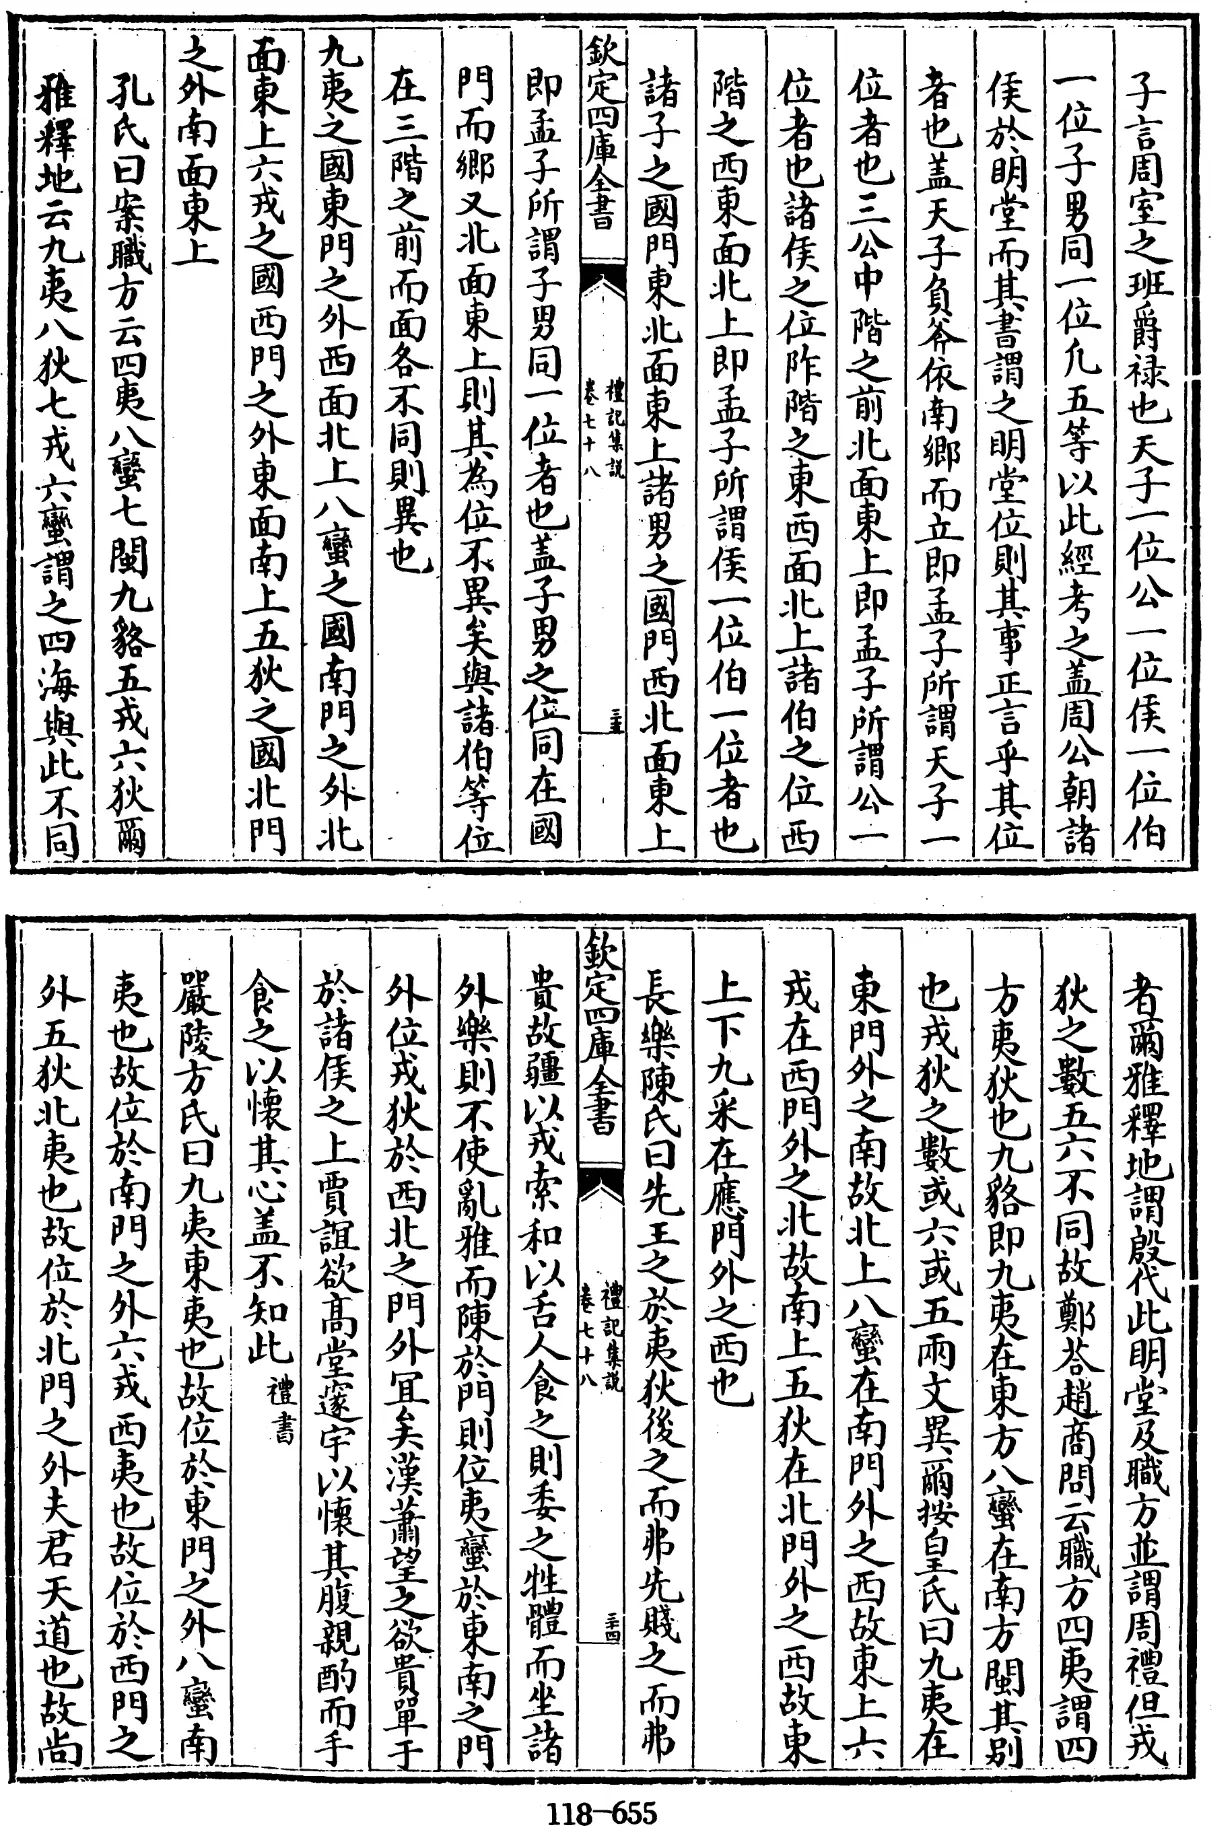 子言周室之班爵禄也天子一位公一位侯一位伯
一位子男同一位凡五等以此經考之盖周公朝諸
侯於明堂而其書謂之明堂位則其事正言乎其位
者也盖天子負斧依南鄉而立即孟子所謂天子一
位者也三公中階之前北面東上即孟子所謂公一
位者也諸侯之位阼階之東西面北上諸伯之位西
階之西東面北上即孟子所謂侯一位伯一位者也
諸子之國門東北面東上諸男之國門西北面東上
欽定四庫全書
禮記集說
卷七十八
三十三
即孟子所謂子男同一位者也盖子男之位同在國
門而鄉又北面東上則其為位不異矣與諸伯等位
在三階之前而面各不同則異也
九夷之國東門之外西面北上八蠻之國南門之外北
面東上六戎之國西門之外東面南上五狄之國北門
之外南面東上
孔氏曰案職方云四夷八蠻七閩九貉五戎六狄爾
雅釋地云九夷八狄七戎六蠻謂之四海與此不同
者爾雅釋地謂殷代此明堂及職方並謂周禮但戎
狄之數五六不同故鄭荅趙商問云職方四夷謂四
方夷狄也九貉即九夷在東方八蠻在南方閩其别
也戎狄之數或六或五兩文異爾按皇氏曰九夷在
東門外之南故北上八蠻在南門外之西故東上六
戎在西門外之北故南上五狄在北門外之西故東
上下九采在應門外之西也
長樂陳氏曰先王之於夷狄後之而弗先賤之而弗
欽定四庫全書
禮記集說
卷七十八
三十四
貴故疆以戎索和以舌人食之則委之牲體而坐諸
外樂則不使亂雅而陳於門則位夷蠻於東南之門
外位戎狄於西北之門外宜矣漢蕭望之欲貴單于
於諸侯之上賈誼欲髙堂邃宇以懷其腹親酌而手
食之以懷其心盖不知此禮書
嚴陵方氏曰九夷東夷也故位於東門之外八蠻南
夷也故位於南門之外六戎西夷也故位於西門之
外五狄北夷也故位於北門之外夫君天道也故尚
118-655